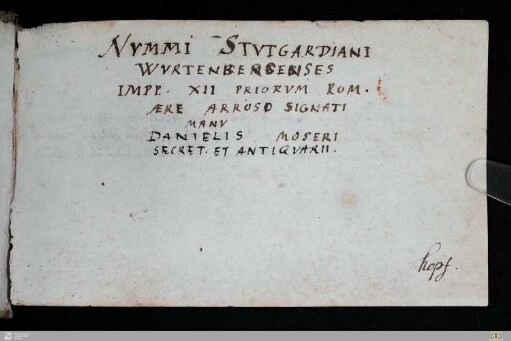 NVMMI STVTGARDIANI
WVRTENBERGENSES
IMPP. XII PRIORVM ROM.
ÆRE ARROSO SIGNATI
MANV
DANIELIS MOSERI
SECRET. ET ANTIQVARII.
hopf.